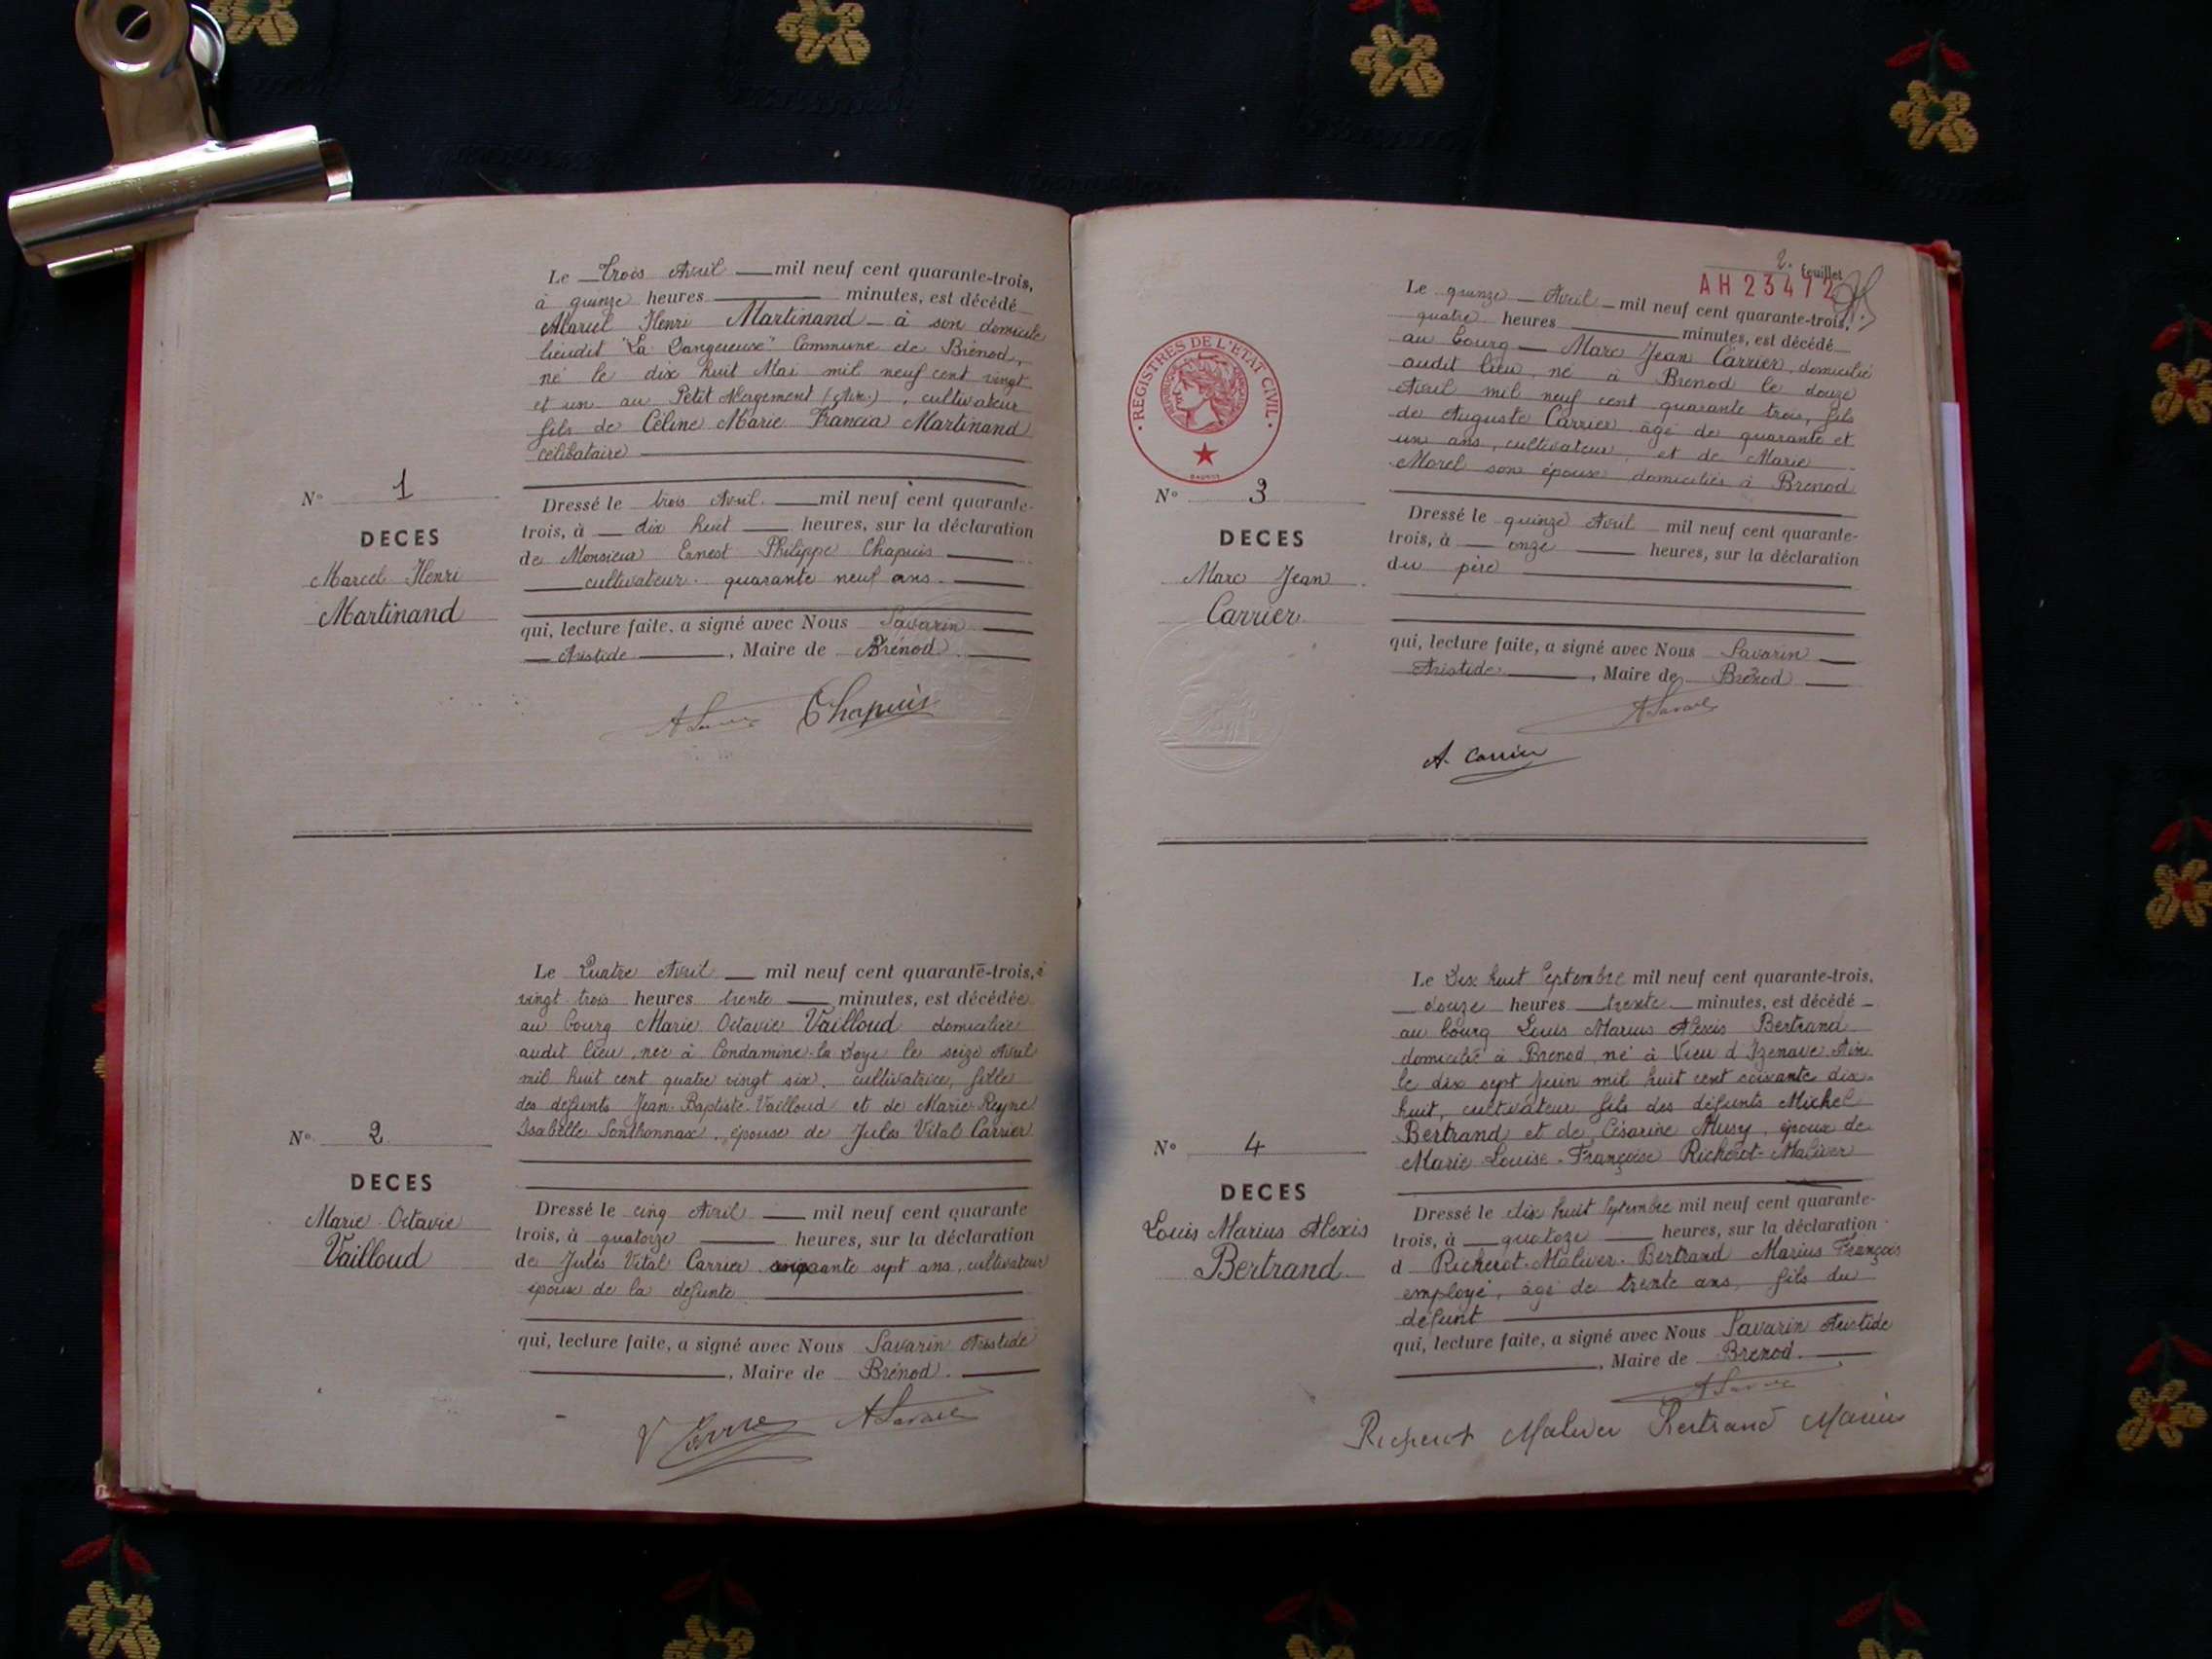 Le Trois Avril mil neuf cent quarante-trois,
à quinze heures minutes, est décédé
Marcel Henri Martinand à son domicile
lieudit "La Dangereuse" Commune de Brénod,
né le dix huit Mai mil neuf cent vingt
et un au Petit Abergement (Ain), cultivateur
fils de Céline Marie Francia Martinand
célibataire
N° 1
DECES
Marcel Henri
Martinand
Dressé le trois Avril mil neuf cent quarante-
trois, à dix huit heures, sur la déclaration
de Monsieur Ernest Philippe Chapuis
cultivateur quarante neuf ans
qui, lecture faite, a signé avec Nous Savarin
Aristide, Maire de Brénod.
Chapuis
Le Quatre Avril mil neuf cent quarante-trois, à
vingt trois heures trente minutes, est décédée
au bourg Marie Octavie Vailloud domiciliée
audit lieu, née à Condamine la Doye le seize Avril
mil huit cent quatre vingt six, cultivatrice, fille
des défunts Jean Baptiste Vailloud et de Marie Reyne
Isabelle Sonthonnax, épouse de Jules Vital Carrier
N° 2
DECES
Marie Octavie
Vailloud
Dressé le cinq Avril mil neuf cent quarante
trois, à quatorze heures, sur la déclaration
de Jules Vital Carrier sept ans, cultivateur
époux de la défunte
qui, lecture faite, a signé avec Nous Savarin Aristide
, Maire de Brénod.
2e feuillet
AH 23472
REGISTRES DE L'ETAT CIVIL
Le quinze Avril mil neuf cent quarante-trois,
quatre heures minutes, est décédé
au bourg Marc Jean Carrier, domicilié
audit lieu, né à Brénod le douze
Avril mil neuf cent quarante trois, fils
de Auguste Carrier âgé de quarante et
un ans, cultivateur, et de Marie
Morel son épouse domiciliés à Brénod
N° 3
DECES
Marc Jean
Carrier
Dressé le quinze Avril mil neuf cent quarante-
trois, à onze heures, sur la déclaration
du père
qui, lecture faite, a signé avec Nous Savarin
Aristide, Maire de Brénod
A. Carrier
Le Dix huit Septembre mil neuf cent quarante-trois,
douze heures trente minutes, est décédé
au bourg Louis Marius Alexis Bertrand
domicilié à Brénod, né à Vieu d'Izenave Ain
le dix sept Juin mil huit cent soixante dix-
huit, cultivateur fils des défunts Michel
Bertrand et de Césarine Musy, époux de
Marie-Louise-Françoise Richerot-Maliver
N° 4
DECES
Louis Marius Alexis
Bertrand
Dressé le dix huit Septembre mil neuf cent quarante-
trois, à quatoze heures, sur la déclaration
d Richerot-Maliver-Bertrand Marius François
employé, âgé de trente ans, fils du
défunt
qui, lecture faite, a signé avec Nous Savarin Aristide
, Maire de Brénod.
Richerot Maliver Bertrand Marius